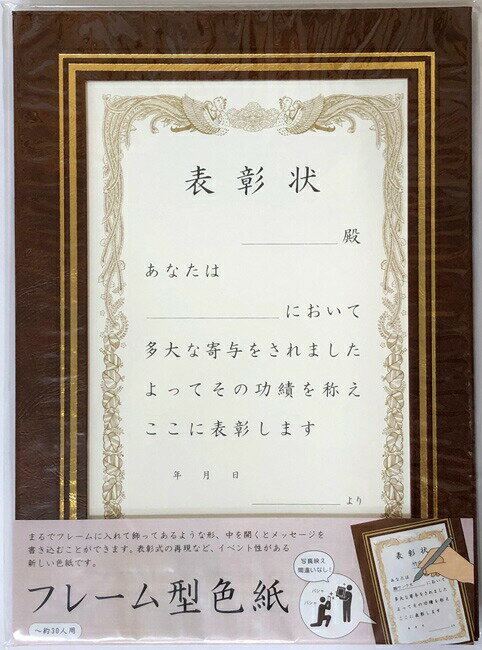 表彰状
殿
あなたは
において
多大な寄与をされました
よってその功績を称え
ここに表彰します
年 月 日
より
まるでフレームに入れて飾ってあるような形、中を開くとメッセージを
書き込むことができます。表彰式の再現など、イベント性がある
新しい色紙です。
フレーム型色紙
〜約30人用
写真映え
間違いなし!
パシャ
パシャ
表彰状
殿
あなたは
において
多大な寄与をされました
よってその功績を称え
ここに表彰します